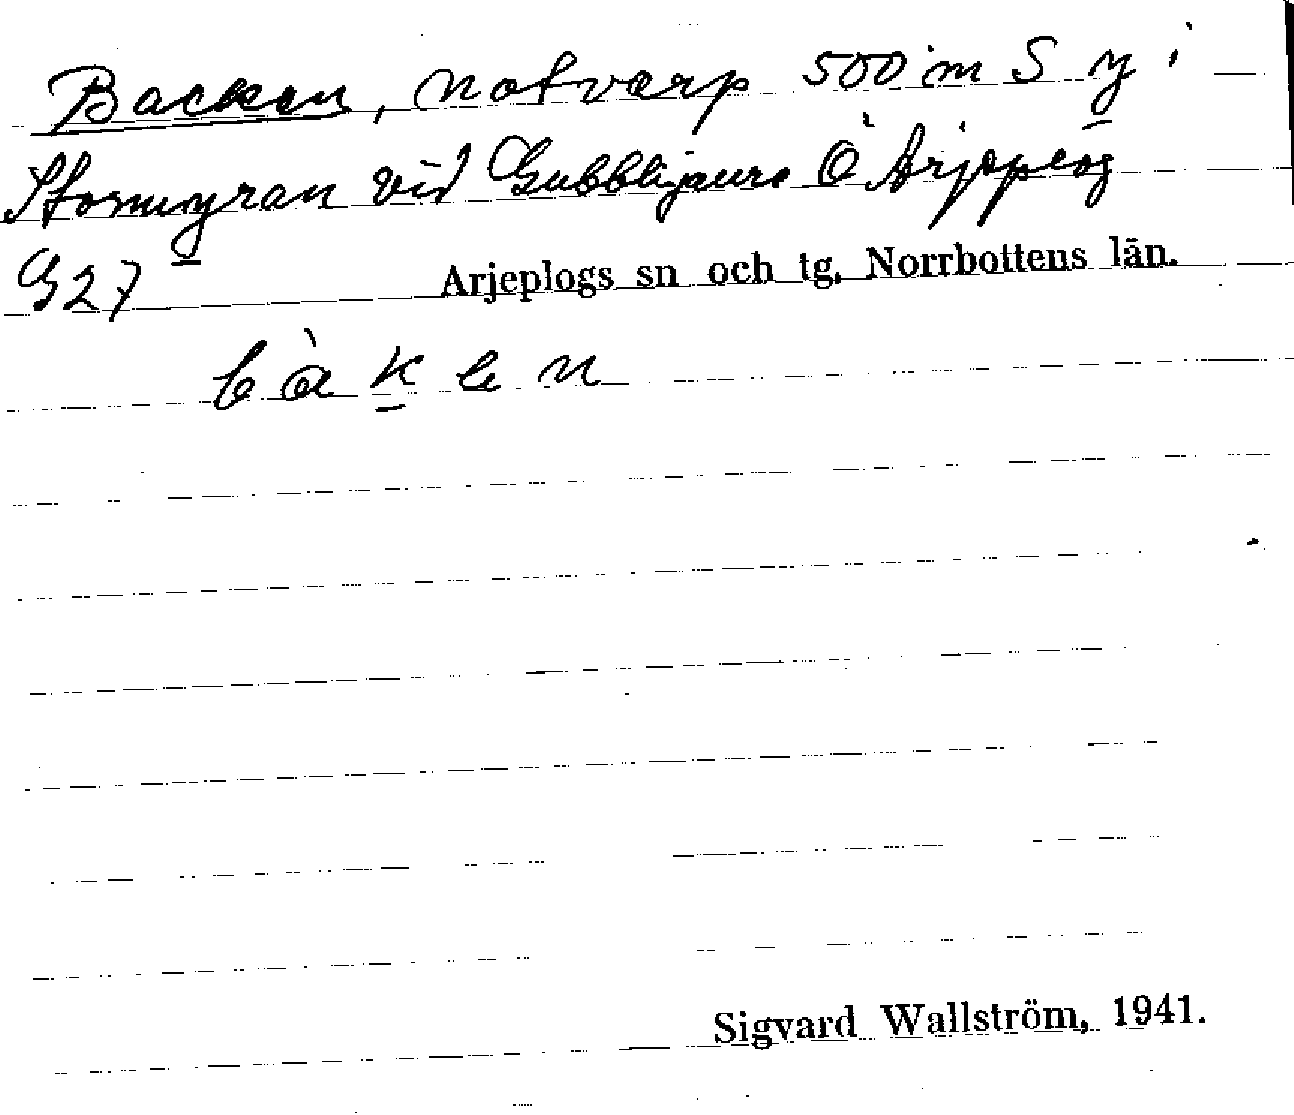 Backen, notvarp 500 m S y i
Stormyran vid Gubblijaure Ö Arjeplog
G27 Arjeplogs sn och tg, Norrbottens län.
bàken
Sigvard Wallström, 1941.